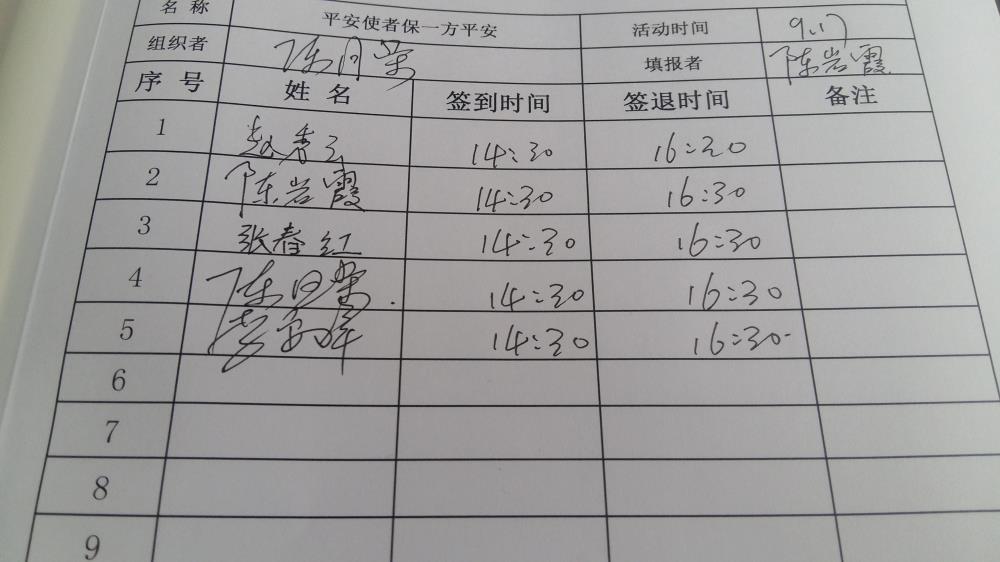 名 称 平安使者保一方平安 活动时间 9.17
组织者 填报者 陈岩霞
序 号 姓 名 签到时间 签退时间 备注
1 赵秀 14:30 16:20
2 陈岩霞 14:30 16:30
3 张春红 14:30 16:30
4 陈 14:30 16:30
5 14:30 16:30
6
7
8
9